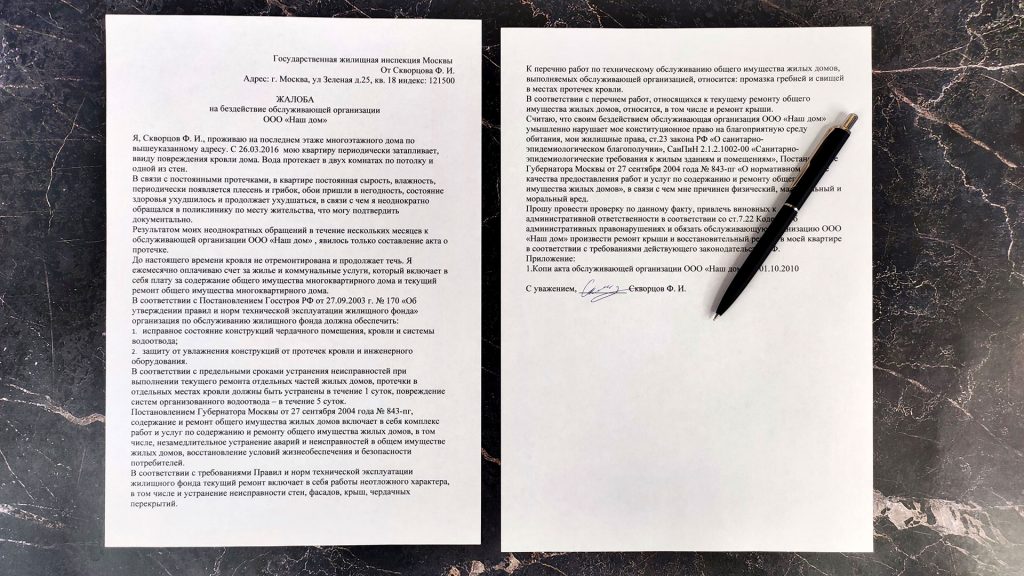 Государственная жилищная инспекция Москвы
От Скворцова Ф. И.
Адрес: г. Москва, ул Зеленая д.25, кв. 18 индекс: 121500
ЖАЛОБА
на бездействие обслуживающей организации
ООО «Наш дом»
Я, Скворцов Ф. И., проживаю на последнем этаже многоэтажного дома по
вышеуказанному адресу. С 26.03.2016 мою квартиру периодически затапливает,
ввиду повреждения кровли дома. Вода протекает в двух комнатах по потолку и
одной из стен.
В связи с постоянными протечками, в квартире постоянная сырость, влажность,
периодически появляется плесень и грибок, обои пришли в негодность, состояние
здоровья ухудшилось и продолжает ухудшаться, в связи с чем я неоднократно
обращался в поликлинику по месту жительства, что могу подтвердить
документально.
Результатом моих неоднократных обращений в течение нескольких месяцев к
обслуживающей организации ООО «Наш дом» , явилось только составление акта о
протечке.
До настоящего времени кровля не отремонтирована и продолжает течь. Я
ежемесячно оплачиваю счет за жилье и коммунальные услуги, который включает в
себя плату за содержание общего имущества многоквартирного дома и текущий
ремонт общего имущества многоквартирного дома.
В соответствии с Постановлением Госстроя РФ от 27.09.2003 г. № 170 «Об
утверждении правил и норм технической эксплуатации жилищного фонда»
организация по обслуживанию жилищного фонда должна обеспечить:
1. исправное состояние конструкций чердачного помещения, кровли и системы
водоотвода;
2. защиту от увлажнения конструкций от протечек кровли и инженерного
оборудования.
В соответствии с предельными сроками устранения неисправностей при
выполнении текущего ремонта отдельных частей жилых домов, протечки в
отдельных местах кровли должны быть устранены в течение 1 суток, повреждение
систем организованного водоотвода – в течение 5 суток.
Постановлением Губернатора Москвы от 27 сентября 2004 года № 843-пг,
содержание и ремонт общего имущества жилых домов включает в себя комплекс
работ и услуг по содержанию и ремонту общего имущества жилых домов, в том
числе, незамедлительное устранение аварий и неисправностей в общем имуществе
жилых домов, восстановление условий жизнеобеспечения и безопасности
потребителей.
В соответствии с требованиями Правил и норм технической эксплуатации
жилищного фонда текущий ремонт включает в себя работы неотложного характера,
в том числе и устранение неисправности стен, фасадов, крыш, чердачных
перекрытий.
К перечню работ по техническому обслуживанию общего имущества жилых домов,
выполняемых обслуживающей организацией, относится: промазка гребней и свищей
в местах протечек кровли.
В соответствии с перечнем работ, относящихся к текущему ремонту общего
имущества жилых домов, относится, в том числе и ремонт крыши.
Считаю, что своим бездействием обслуживающая организация ООО «Наш дом»
умышленно нарушает мое конституционное право на благоприятную среду
обитания, мои жилищные права, ст.23 закона РФ «О санитарно-
эпидемиологическом благополучии», СанПиН 2.1.2.1002-00 «Санитарно-
эпидемиологические требования к жилым зданиям и помещениям»,
Губернатора Москвы от 27 сентября 2004 года № 843-пг «О нормативном
качества предоставления работ и услуг по содержанию и ремонту
имущества жилых домов», в связи с чем мне причинен физический, и
моральный вред.
Прошу провести проверку по данному факту, привлечь виновных к
административной ответственности в соответствии со ст.7.22
административных правонарушениях и обязать обслуживающую ООО
«Наш дом» произвести ремонт крыши и восстановительный в моей квартире
в соответствии с требованиями действующего
Приложение:
1.Копи акта обслуживающей организации ООО «Наш 01.10.2010
С уважением, Скворцов Ф. И.